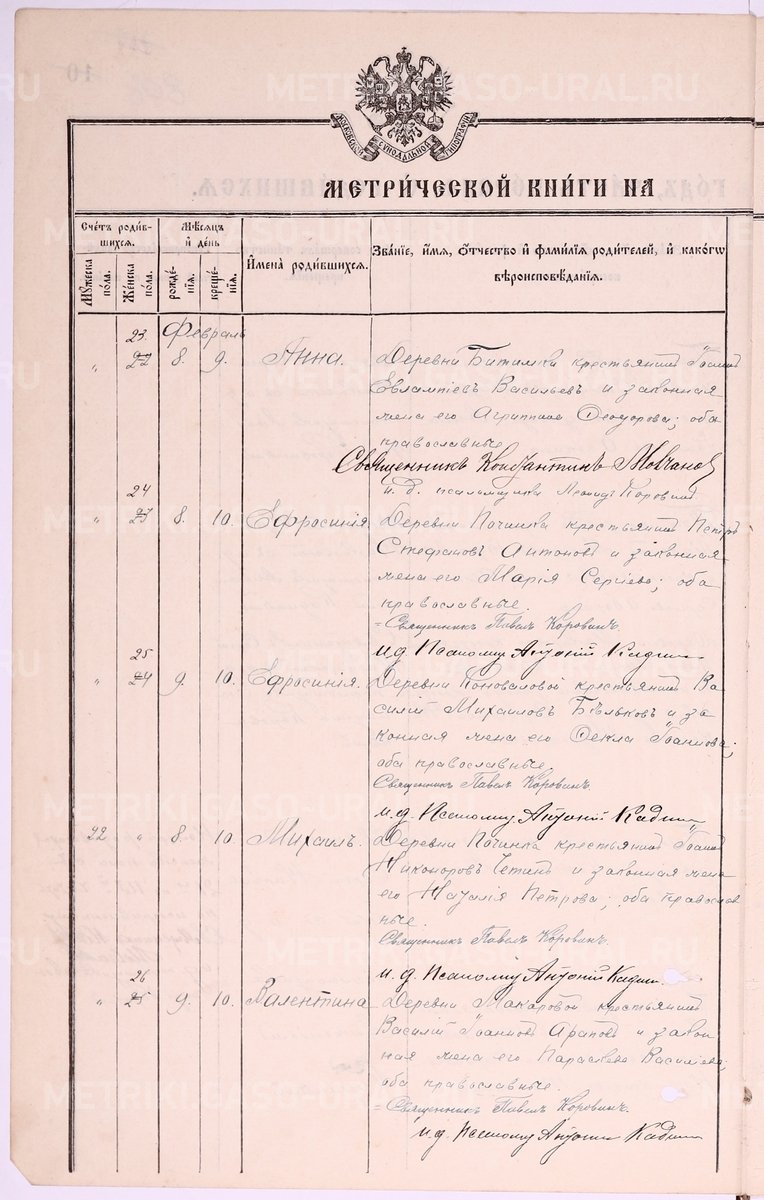 МОСКОВСКОЙ СѴНОДАЛЬНОЙ ТИПОГРАФІИ
МЕТРИ́ЧЕСКОЙ КНИ́ГИ НА
Счетъ роди́вшихся.
Мѣ́сяцъ и́ де́нь
И҆мена̀ роди́вшихся.
Зва́ніе, и҆́мя, ѻ҆́тчество и҆ фами́лія роди́телей, и҆ како́гѡ вѣроисповѣ́данія.
Мꙋ́жеска по́ла.
Же́нска по́ла.
рожде́нія.
креще́нія.
Февраль
23
22 8. 9. Анна. Деревни Битимки крестьянинъ Іоаннъ
Евлампіевъ Васильевъ и законная
жена его Агриппина Ѳеодорова; оба
православные
Священникъ Константинъ Молчановъ
и. д. псаломщика Леонидъ Коровинъ.
24
23 8. 10. Ефросинія. Деревни Починка крестьянинъ Петръ
Стефановъ Антоновъ и законная
жена его Марія Сергіева; оба
православные.
Священникъ Павелъ Коровинъ.
25
и. д. Псаломщ Антоній Кадкин
24 9. 10. Ефросинія. Деревни Коноваловой крестьянинъ Ва
силій Михаиловъ Бѣльковъ и за
конная жена его Ѳекла Іоаннова;
оба православные.
Священникъ Павелъ Коровинъ.
и. д. Псаломщ Антоній Кадкин
22 " 8. 10. Михаилъ. Деревни Починка крестьянинъ Іоаннъ
Никоноровъ и законная жена
его Наталія Петрова; оба православ
ные.
Священникъ Павелъ Коровинъ.
26
и. д. Псаломщ Антоній Кадкин
25 9. 10. Валентина Деревни Макаровой крестьянинъ
Василій Іоанновъ Араповъ и закон
ная жена его Параскева Василіева;
оба православные.
Священникъ Павелъ Коровинъ.
и. д. Псаломщ Антоній Кадкин
METRIKI.GASO-URAL.RU